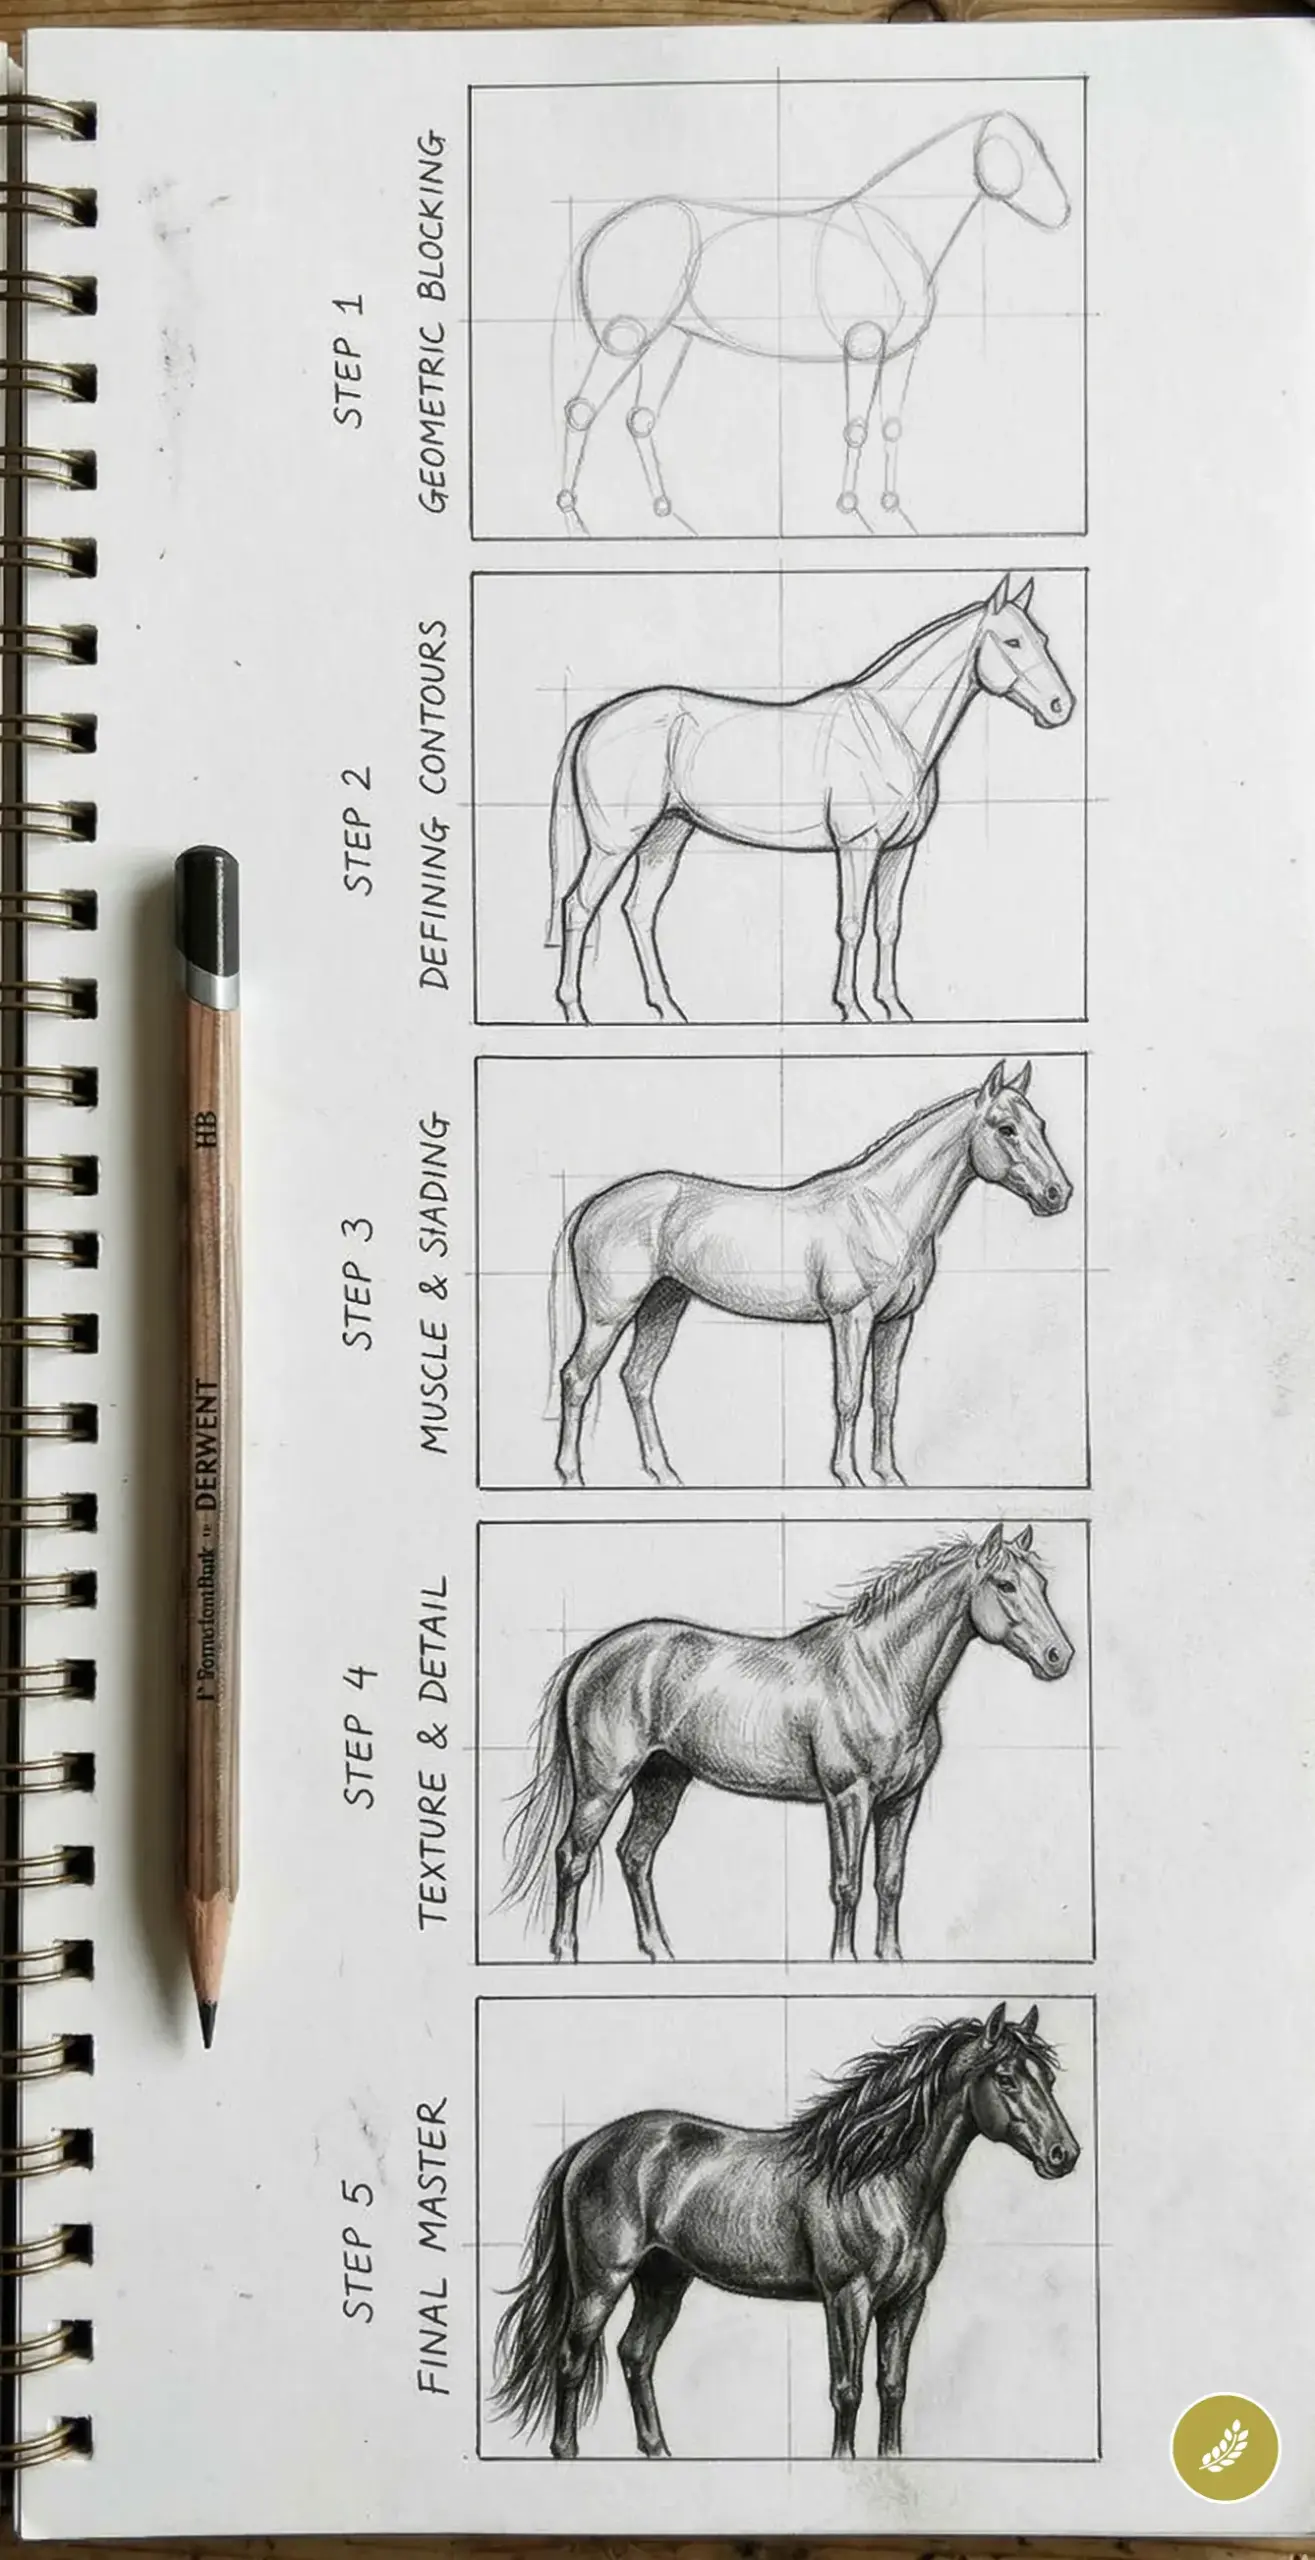 STEP 1
GEOMETRIC BLOCKING
STEP 2
DEFINING CONTOURS
STEP 3
MUSCLE & SIADING
STEP 4
TEXTURE & DETAIL
STEP 5
FINAL MASTER
DERWENT
HB